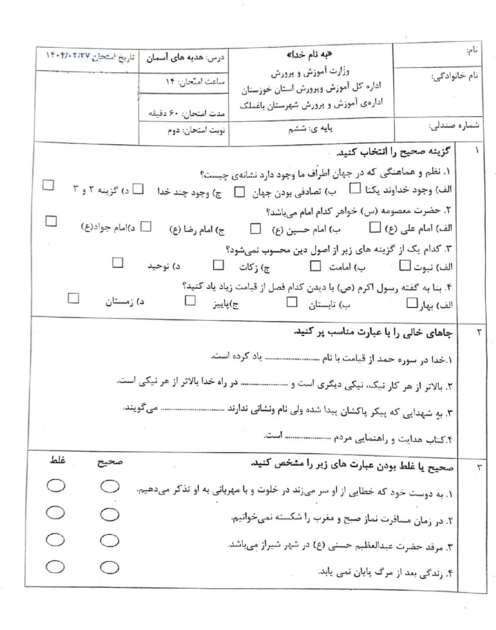 نام:
نام خانوادگی:
شماره صندلی:
«به نام خدا»
وزارت آموزش و پرورش
اداره کل آموزش وپرورش استان خوزستان
اداره‌ی آموزش و پرورش شهرستان باغملک
پایه ی: ششم
درس: هدیه های آسمان
ساعت امتحان: ۱۴
مدت امتحان: ۶۰ دقیقه
نوبت امتحان: دوم
تاریخ امتحان: ۱۴۰۴/۰۲/۲۷
۱ گزینه صحیح را انتخاب کنید.
۱. نظم و هماهنگی که در جهان اطراف ما وجود دارد نشانه‌ی چیست؟
الف) وجود خداوند یکتا ب) تصادفی بودن جهان ج) وجود چند خدا د) گزینه ۲ و ۳
۲. حضرت معصومه (س) خواهر کدام امام می‌باشد؟
الف) امام علی (ع) ب) امام حسین (ع) ج) امام رضا (ع) د)امام جواد(ع)
۳. کدام یک از گزینه های زیر از اصول دین محسوب نمی‌شود؟
الف) نبوت ب) امامت ج) زکات د) توحید
۴. بنا به گفته رسول اکرم (ص) با دیدن کدام فصل از قیامت زیاد یاد کنید؟
الف) بهار ب) تابستان ج)پاییز د) زمستان
۲ جاهای خالی را با عبارت مناسب پر کنید.
۱.خدا در سوره حمد از قیامت با نام .................. یاد کرده است.
۲. بالاتر از هر کار نیک، نیکی دیگری است و ................ در راه خدا بالاتر از هر نیکی است.
۳. به شهدایی که پیکر پاکشان پیدا شده ولی نام ونشانی ندارند .................... می‌گویند.
۴.کتاب هدایت و راهنمایی مردم ................ است.
۳ صحیح یا غلط بودن عبارت های زیر را مشخص کنید. صحیح غلط
۱. به دوست خود که خطایی از او سر می‌زند در خلوت و با مهربانی به او تذکر می‌دهیم.
۲. در زمان مسافرت نماز صبح و مغرب را شکسته نمی‌خوانیم.
۳. مرقد حضرت عبدالعظیم حسنی (ع) در شهر شیراز می‌باشد.
۴. زندگی بعد از مرگ پایان نمی یابد.